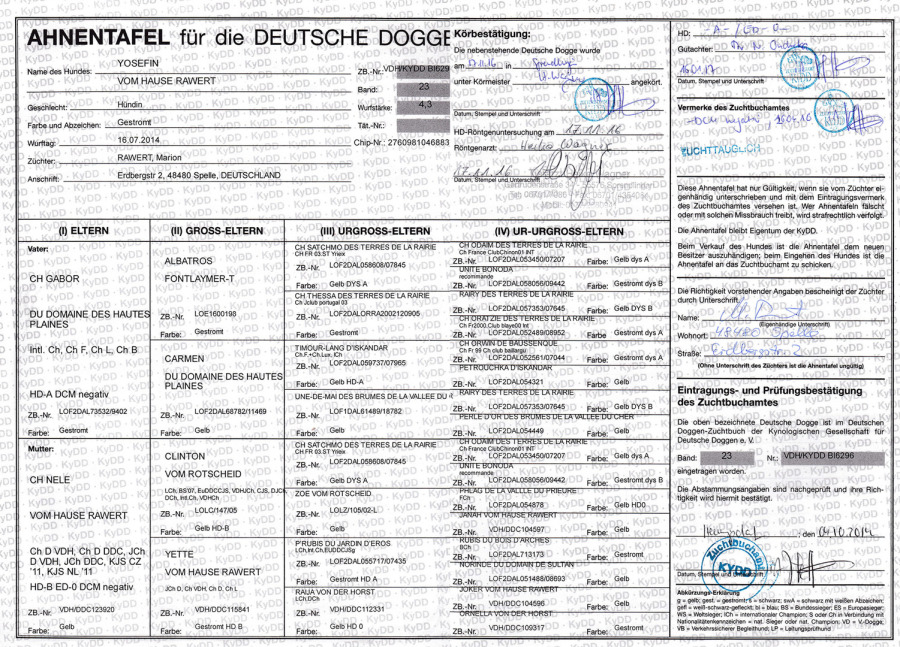 AHNENTAFEL für die DEUTSCHE DOGGE
Name des Hundes: YOSEFIN
VOM HAUSE RAWERT
ZB.-Nr. VDH/KYDD BI629
Band: 23
Geschlecht: Hündin
Wurfstärke: 4,3
Farbe und Abzeichen: Gestromt
Tät.-Nr.:
Wurftag: 16.07.2014
Chip-Nr.: 2760981046883
Züchter: RAWERT, Marion
Anschrift: Erdbergstr 2, 48480 Spelle, DEUTSCHLAND
Körbestätigung:
Die nebenstehende Deutsche Dogge wurde
am in
unter Körmeister angekört.
Datum, Stempel und Unterschrift
HD-Röntgenuntersuchung am 17.11.16
Röntgenarzt: Heiko Wagner
17.11.16
Datum, Stempel und Unterschrift
HD:
Gutachter:
Datum, Stempel und Unterschrift
Vermerke des Zuchtbuchamtes
ZUCHTTAUGLICH
Diese Ahnentafel hat nur Gültigkeit, wenn sie vom Züchter ei-
genhändig unterschrieben und mit dem Eintragungsvermerk
des Zuchtbuchamtes versehen ist. Wer Ahnentafeln fälscht
oder mit solchen Missbrauch treibt, wird strafrechtlich verfolgt.
Die Ahnentafel bleibt Eigentum der KyDD.
Beim Verkauf des Hundes ist die Ahnentafel dem neuen
Besitzer auszuhändigen; beim Eingehen des Hundes ist die
Ahnentafel an das Zuchtbuchamt zu schicken.
Die Richtigkeit vorstehender Angaben bescheinigt der Züchter
durch Unterschrift.
Name:
(Eigenhändige Unterschrift)
Wohnort: 48480 Spelle
Straße: Erdbergstr. 2
(Ohne Unterschrift des Züchters ist die Ahnentafel ungültig)
Eintragungs- und Prüfungsbestätigung
des Zuchtbuchamtes
Die oben bezeichnete Deutsche Dogge ist im Deutschen
Doggen-Zuchtbuch der Kynologischen Gesellschaft für
Deutsche Doggen e. V.
Band: 23 Nr.: VDH/KYDD BI6296
eingetragen worden.
Die Abstammungsangaben sind nachgeprüft und ihre Rich-
tigkeit wird hiermit bestätigt.
, den 04.10.2014
Zuchtbuchamt
KYDD
Datum, Stempel und Unterschrift
Abkürzungs-Erklärung
g = gelb; gest. = gestromt; s = schwarz; swA = schwarz mit weißen Abzeichen;
gefl = weiß-schwarz-gefleckt; bl = blau; BS = Bundessieger; ES = Europasieger;
WS = Weltsieger; ICh = internationaler Champion; S oder Ch in Verbindung mit
Nationalitätenkennzeichen = nat. Sieger oder nat. Champion; VD = V.-Dogge;
VB = Verkehrssicherer Begleithund; LP = Leitungsprüfung
(I) ELTERN
Vater:
CH GABOR
DU DOMAINE DES HAUTES
PLAINES
intl. Ch, Ch F, Ch L, Ch B
HD-A DCM negativ
ZB.-Nr. LOF2DAL73532/9402
Farbe: Gestromt
Mutter:
CH NELE
VOM HAUSE RAWERT
Ch D VDH, Ch D DDC, JCh
D VDH, JCh DDC, KJS CZ
'11, KJS NL '11
HD-B ED-0 DCM negativ
ZB.-Nr. VDH/DDC123920
Farbe: Gelb
(II) GROSS-ELTERN
ALBATROS
FONTLAYMER-T
ZB.-Nr. LOE1600198
Farbe: Gestromt
CARMEN
DU DOMAINE DES HAUTES
PLAINES
ZB.-Nr. LOF2DAL68782/11469
Farbe: Gelb
CLINTON
VOM ROTSCHEID
LCh, BS'07, EuDDCCJS, VDHJCh, CJS, DJCh,
DCh, Int.Ch, VDHCh
ZB.-Nr. LOLC/147/05
Farbe: Gelb HD-B
YETTE
VOM HAUSE RAWERT
JCh D, Ch VDH, Ch D, Ch L
ZB.-Nr. VDH/DDC115841
Farbe: Gestromt HD B
(III) URGROSS-ELTERN
CH SATCHMO DES TERRES DE LA RAIRIE
CH FR 03.ST Yriex
ZB.-Nr. LOF2DAL058608/07845
Farbe: Gelb DYS A
CH THESSA DES TERRES DE LA RAIRIE
Ch Jclub portugal 03
ZB.-Nr. LOF2DALORRA2002120905
Farbe: Gestromt
TIMOUR-LANG D'ISKANDAR
Ch.F.+Ch.Lux, ICh
ZB.-Nr. LOF2DAL059737/07965
Farbe: Gelb HD-A
UNE-DE-MAI DES BRUMES DE LA VALLEE DU
ZB.-Nr. LOF1DAL61489/18782
Farbe: Gelb
CH SATCHMO DES TERRES DE LA RAIRIE
CH FR 03.ST Yriex
ZB.-Nr. LOF2DAL058608/07845
Farbe: Gelb DYS A
ZOE VOM ROTSCHEID
ZB.-Nr. LOLZ/105/02-L
Farbe: Gelb
P'RUBIS DU JARDIN D'EROS
LCh,Int.Ch,EUDDCJSg
ZB.-Nr. LOF2DAL055717/07435
Farbe: Gestromt HD A
RAUA VON DER HORST
LCh,DCh
ZB.-Nr. VDH/DDC112331
Farbe: Gelb HD 0
(IV) UR-URGROSS-ELTERN
CH ODAIM DES TERRES DE LA RAIRIE
Ch France ClubChinon01 INT
ZB.-Nr. LOF2DAL053450/07207 Farbe: Gelb dys A
UNITE BONODA
recommande
ZB.-Nr. LOF2DAL058056/09442 Farbe: Gestromt dys B
RAIRY DES TERRES DE LA RAIRIE
ZB.-Nr. LOF2DAL057353/07645 Farbe: Gelb DYS B
CH ORATZIE DES TERRES DE LA RAIRIE
Ch Fr2000.Club blaye00 Int
ZB.-Nr. LOF2DAL052489/08952 Farbe: Gestromt dys A
CH ORWIN DE BAUSSENQUE
Ch Fr 99 Ch club baillargu
ZB.-Nr. LOF2DAL052561/07044 Farbe: Gestromt dys A
PETROUCHKA D'ISKANDAR
ZB.-Nr. LOF2DAL054321 Farbe: Gelb
RAIRY DES TERRES DE LA RAIRIE
ZB.-Nr. LOF2DAL057353/07645 Farbe: Gelb DYS B
PERLE D'OR DES BRUMES DE LA VALLEE DU CHER
ZB.-Nr. LOF2DAL054449 Farbe: Gelb
CH ODAIM DES TERRES DE LA RAIRIE
Ch France ClubChinon01 INT
ZB.-Nr. LOF2DAL053450/07207 Farbe: Gelb dys A
UNITE BONODA
recommande
ZB.-Nr. LOF2DAL058056/09442 Farbe: Gestromt dys B
PHLAG DE LA VALLEE DU PRIEURE
FCh
ZB.-Nr. LOF2DAL054878 Farbe: Gelb HD0
JANAH VOM HAUSE RAWERT
ZB.-Nr. VDH/DDC104597 Farbe: Gelb
RUBIS DU BOIS D'ARCHES
BCh
ZB.-Nr. LOF2DAL713173 Farbe: Gestromt
NORINDE DU DOMAINE DE SULTAN
ZB.-Nr. LOF2DAL051488/08693 Farbe: Gelb
JOKER VOM HAUSE RAWERT
ZB.-Nr. VDH/DDC104596 Farbe: Gelb
ORNELLA VON DER HORST
ZB.-Nr. VDH/DDC109317 Farbe: Gestromt